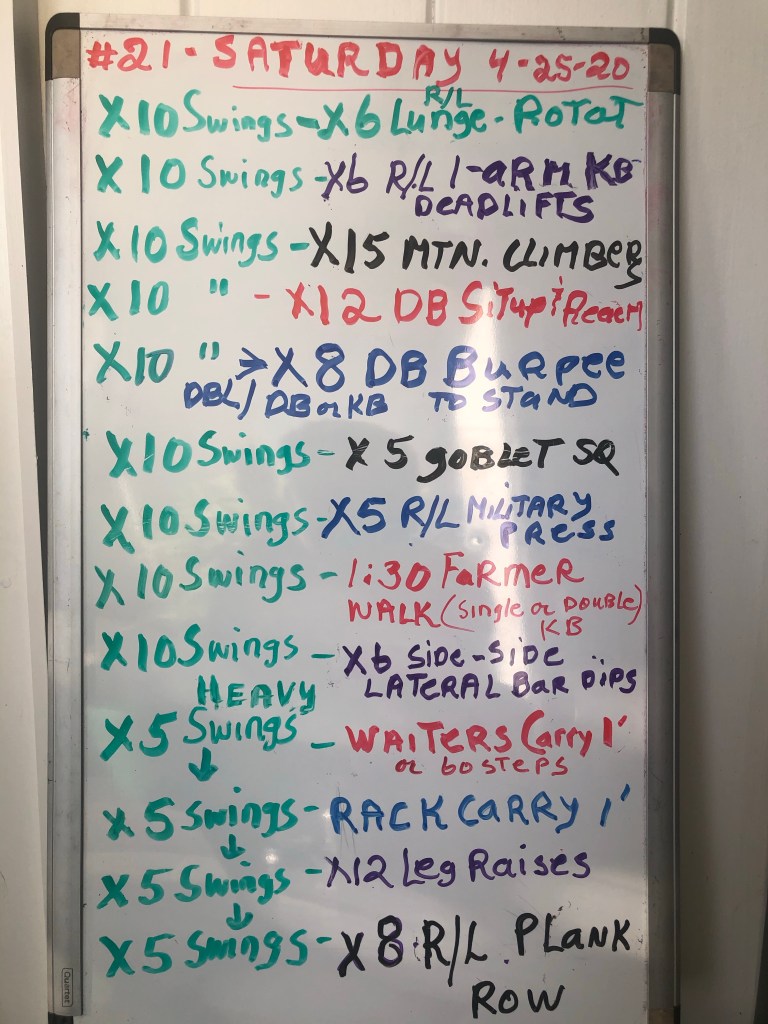 #21 - SATURDAY 4-25-20
X10 Swings - X6 R/L Lunge - Rotat
X10 Swings - X6 R/L 1-ARM KB
DEADLIFTS
X10 Swings - X15 MTN. CLIMBERS
X10 " - X12 DB Situp & Reach
X10 " > X8 DB Burpee
DBL/DB or KB TO STAND
X10 Swings - X5 GOBLET SQ
X10 Swings - X5 R/L MILITARY
PRESS
X10 Swings - 1:30 FARMER
WALK (Single or Double)
KB
X10 Swings - X6 SIDE-SIDE
LATERAL Bar Dips
HEAVY
X5 Swings - WAITERS Carry 1'
↓ or 60 STEPS
X5 Swings - RACK CARRY 1'
↓
X5 Swings - X12 Leg Raises
↓
X5 Swings - X8 R/L PLANK
ROW
Quartet